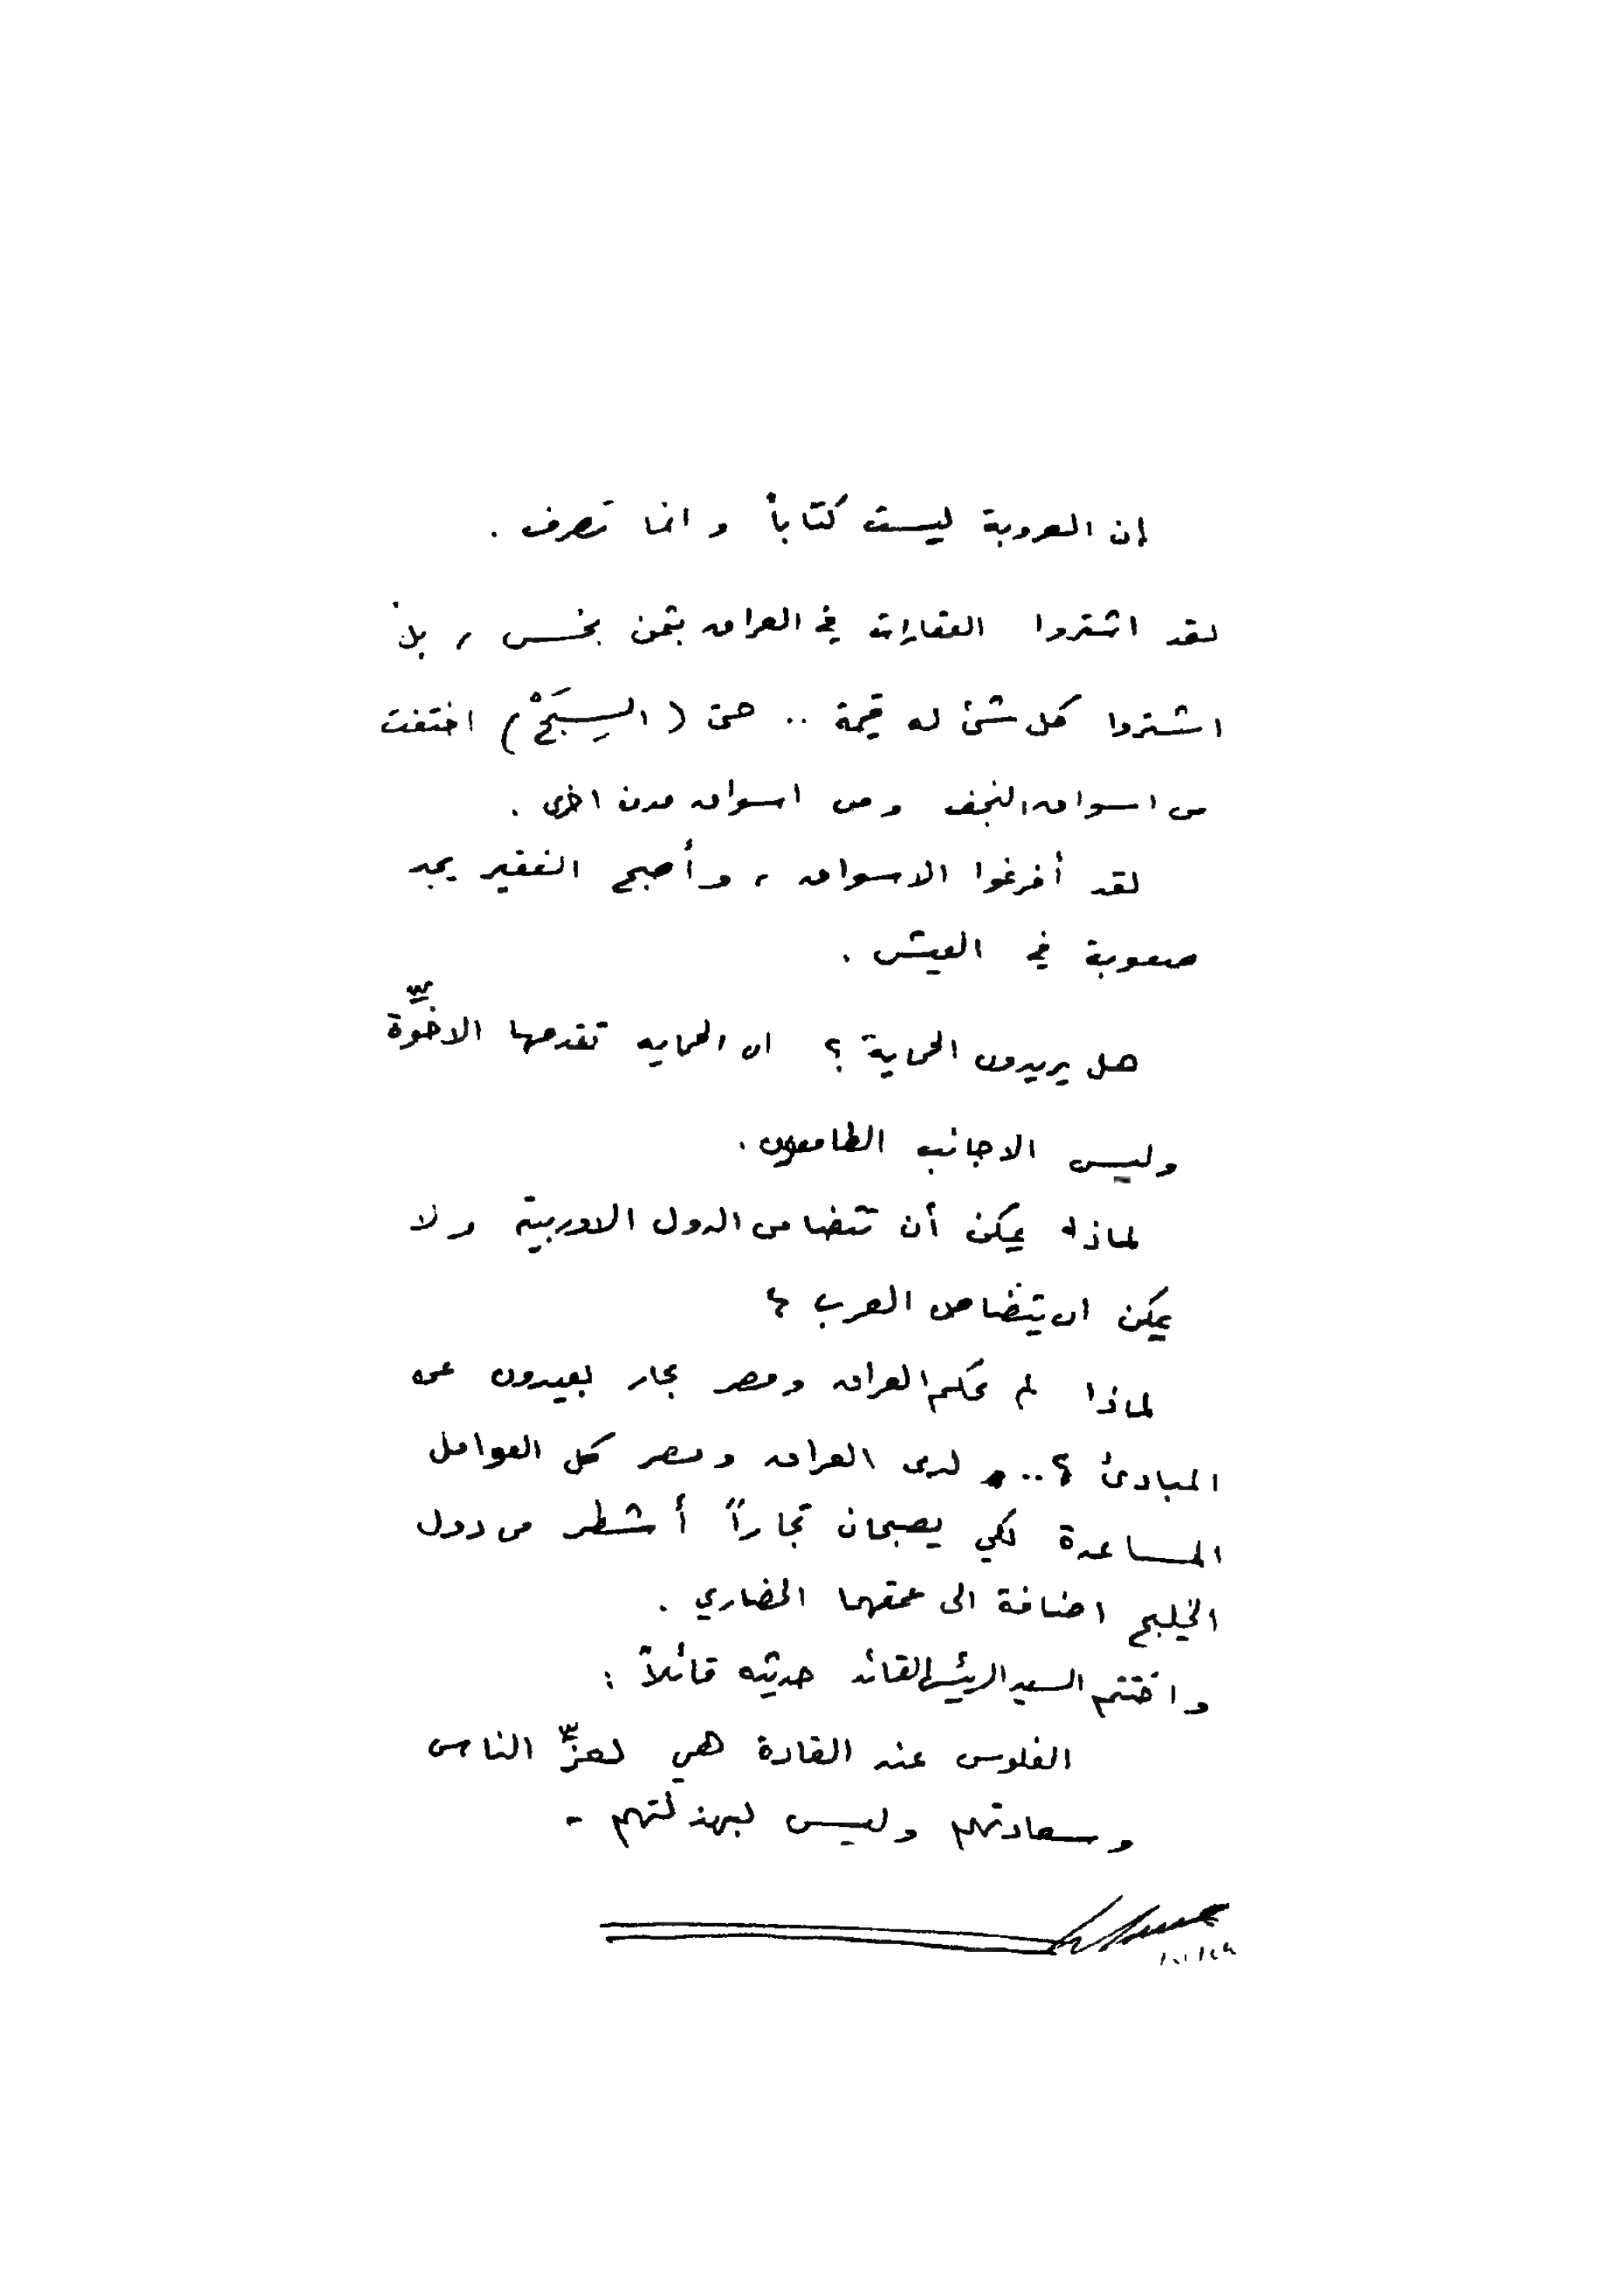 إن العروبة ليست كتاباً وانما تصرف .
لقد اشتروا العقارات في العراق بثمن بخس ، بل
اشتروا كل شئ له قيمة .. حتى ( السِبَحْ ) اختفت
من اسواق النجف ومن اسواق مدن اخرى .
لقد أفرغوا الاسواق ، وأصبح الفقير يجد
صعوبة في العيش .
هل يريدون الحماية ؟ ان الحمايه تقدمها الاخوّة
وليس الاجانب الطامعون .
لماذا يمكن أن تتضامن الدول الاوربية ولا
يمكن ان يتضامن العرب ؟
لماذا لم تحكم العراق ومصر تجار بعيدون عن
المبادئ ؟ .. لدى العراق ومصر كل العوامل
المساعدة لكي يصبحان تجاراً أشطر من دول
الخليج اضافة الى عمقهما الحضاري .
واختتم السيد الرئيس القائد حديثه قائلاً :
الفلوس عند القادة هي لعزّ الناس
وسعادتهم وليس لبهذلتهم -